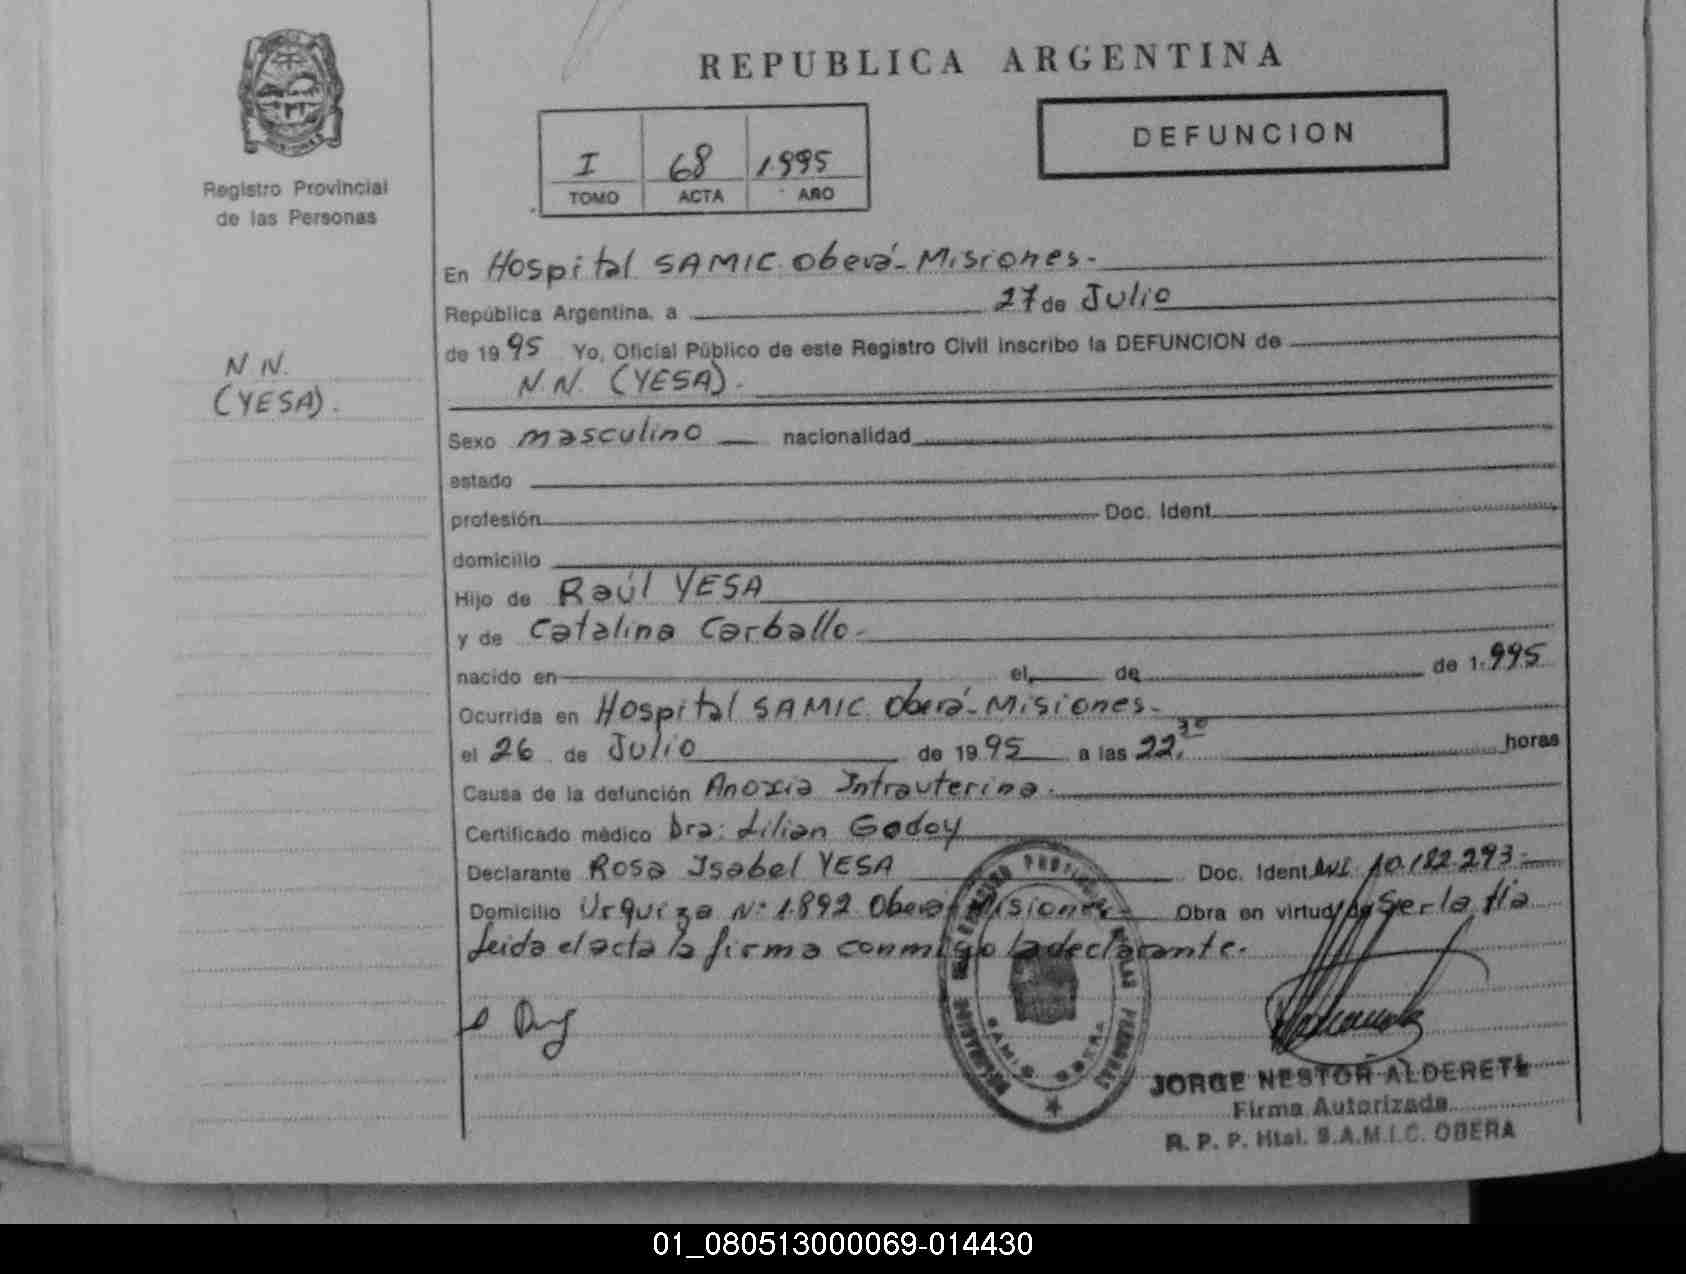 REPUBLICA ARGENTINA
DEFUNCION
I 68 1.995
TOMO ACTA AÑO
Registro Provincial
de las Personas
N N.
(YESA).
En Hospital SAMIC. Oberá- Misiones.-
República Argentina, a 27 de Julio
de 19 95 Yo, Oficial Público de este Registro Civil inscribo la DEFUNCION de
N.N. (YESA).
Sexo masculino nacionalidad
estado
profesión Doc. Ident.
domicilio
Hijo de Raúl YESA
y de Catalina Carballo.-
nacido en el de de 1.995
Ocurrida en Hospital SAMIC. Oberá- Misiones.-
el 26 de Julio de 19 95 a las 22,30 horas
Causa de la defunción Anoxia Intrauterina.
Certificado médico Dra: Lilian Godoy
Declarante Rosa Isabel YESA Doc. Ident. 10.182.293.-
Domicilio Urquiza Nº 1.892 Oberá Misiones.- Obra en virtud de Ser la tía
Leida el acta la firma conmigo la declarante.
JORGE NESTOR ALDERETE
Firma Autorizada
R. P. P. Htal. S.A.M.I.C. OBERA
01_080513000069-014430